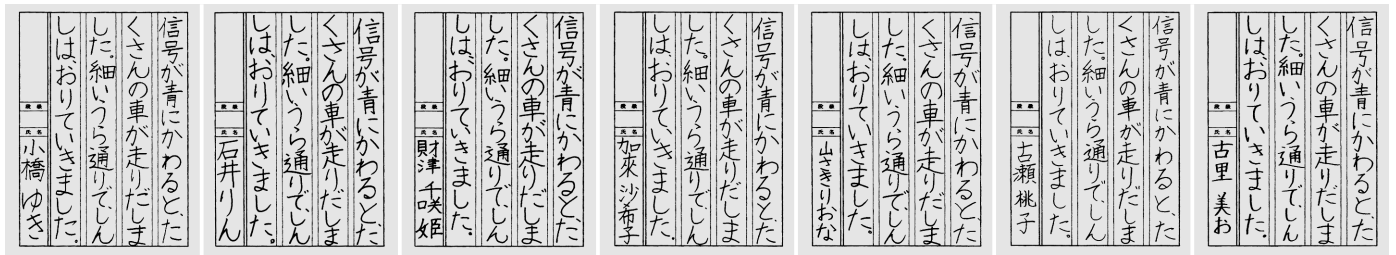 信号が青にかわると、た
くさんの車が走りだしま
した。細いうら通りで、しん
しは、おりていきました。
段級
氏名
小橋ゆき
信号が青にかわると、た
くさんの車が走りだしま
した。細いうら通りで、しん
しは、おりていきました。
段級
氏名
石井りん
信号が青にかわると、た
くさんの車が走りだしま
した。細いうら通りで、しん
しは、おりていきました。
段級
氏名
財津千咲姫
信号が青にかわると、た
くさんの車が走りだしま
した。細いうら通りで、しん
しは、おりていきました。
段級
氏名
加來沙希子
信号が青にかわると、た
くさんの車が走りだしま
した。細いうら通りで、しん
しは、おりていきました。
段級
氏名
山さきりおな
信号が青にかわると、た
くさんの車が走りだしま
した。細いうら通りで、しん
しは、おりていきました。
段級
氏名
古瀬桃子
信号が青にかわると、た
くさんの車が走りだしま
した。細いうら通りで、しん
しは、おりていきました。
段級
氏名
古里美お